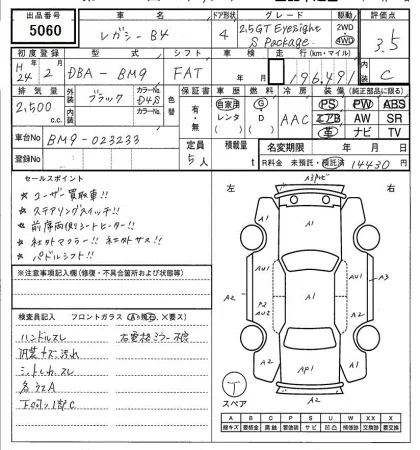 出品番号 車名 ドア形状 グレード 駆動 評価点
5060 レガシー B4 4 2.5GT Eyesight S Package 2WD 4WD 3.5
初度登録 型式 シフト 車検 走行(km・マイル) 内装
H24 2 DBA-BM9 FAT 年 月 196,491 C
排気量 外装 カラーNo. 色替 保証書 車歴 燃料 冷房 装備(純正部品に限る)
2,500 c.c. ブラック D4S 有・無 自家用 レンタ G D AAC PS PW ABS
内装 カラーNo. エアB AW SR
革 ナビ TV
車台No BM9-023233 定員 5人 積載量 t 名変期限 年 月 日
登録No R料金 未預託・預託済 14430 円
セールスポイント
★ ユーザー買取車!!
★ ステアリングスイッチ!!
★ 前席両側シートヒーター!!
★ 社外マフラー!! 社外サス!!
★ パドルシフト!!
※注意事項記入欄(修復・不具合箇所および状態等)
検査員記入 フロントガラス(A・飛石、×要ス)
ハンドルスレ 右電格ミラー不良
内装キズ汚れ
シートヒカスレ
各ウスA
下回り一部C
左 右
A1 A1
A1
AU1 AU1
A2 A1 A3
P2 AU2
AU2
A1 AP1 A1
A2
T
スペア
A B C P S U W X XX
線キズ 要板金 腐蝕 要塗装 サビ 凹凸 補修跡 要交換 交換跡